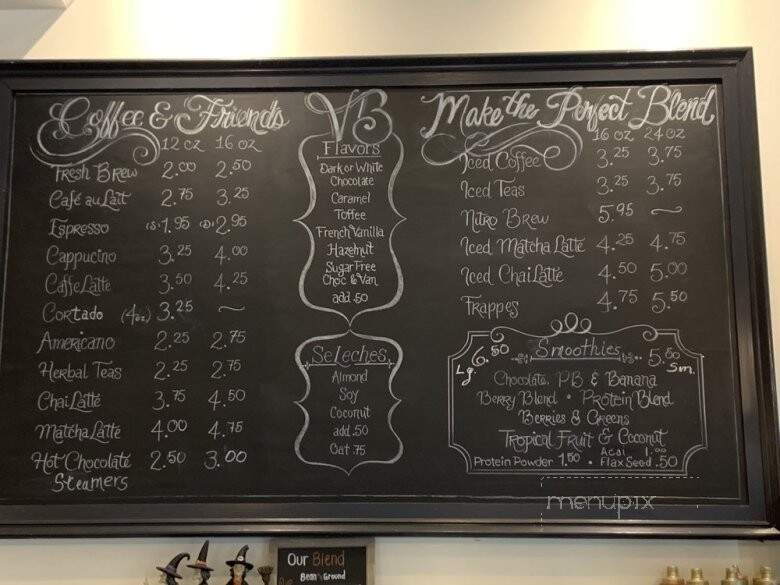 Coffee & Friends
12 oz 16 oz
Fresh Brew 2.00 2.50
Café au Lait 2.75 3.25
Espresso (s) 1.95 (D) 2.95
Cappucino 3.25 4.00
Caffe Latte 3.50 4.25
Cortado (4oz) 3.25 ~
Americano 2.25 2.75
Herbal Teas 2.25 2.75
Chai Latte 3.75 4.50
Matcha Latte 4.00 4.75
Hot Chocolate 2.50 3.00
Steamers
VB
Flavors
Dark or White
Chocolate
Caramel
Toffee
French Vanilla
Hazelnut
Sugar Free
Choc & Van
add .50
SeLeches
Almond
Soy
Coconut
add .50
Oat .75
Make the Perfect Blend
16 oz 24 oz
Iced Coffee 3.25 3.75
Iced Teas 3.25 3.75
Nitro Brew 5.95 ~
Iced Matcha Latte 4.25 4.75
Iced Chai Latte 4.50 5.00
Frappes 4.75 5.50
Lg. 6.50 Smoothies 5.50 Sm.
Chocolate, PB & Banana
Berry Blend • Protein Blend
Berries & Greens
Tropical Fruit & Coconut
Acai 1.00
Protein Powder 1.50 • Flax Seed .50
menupix
Our Blend
Bean Ground